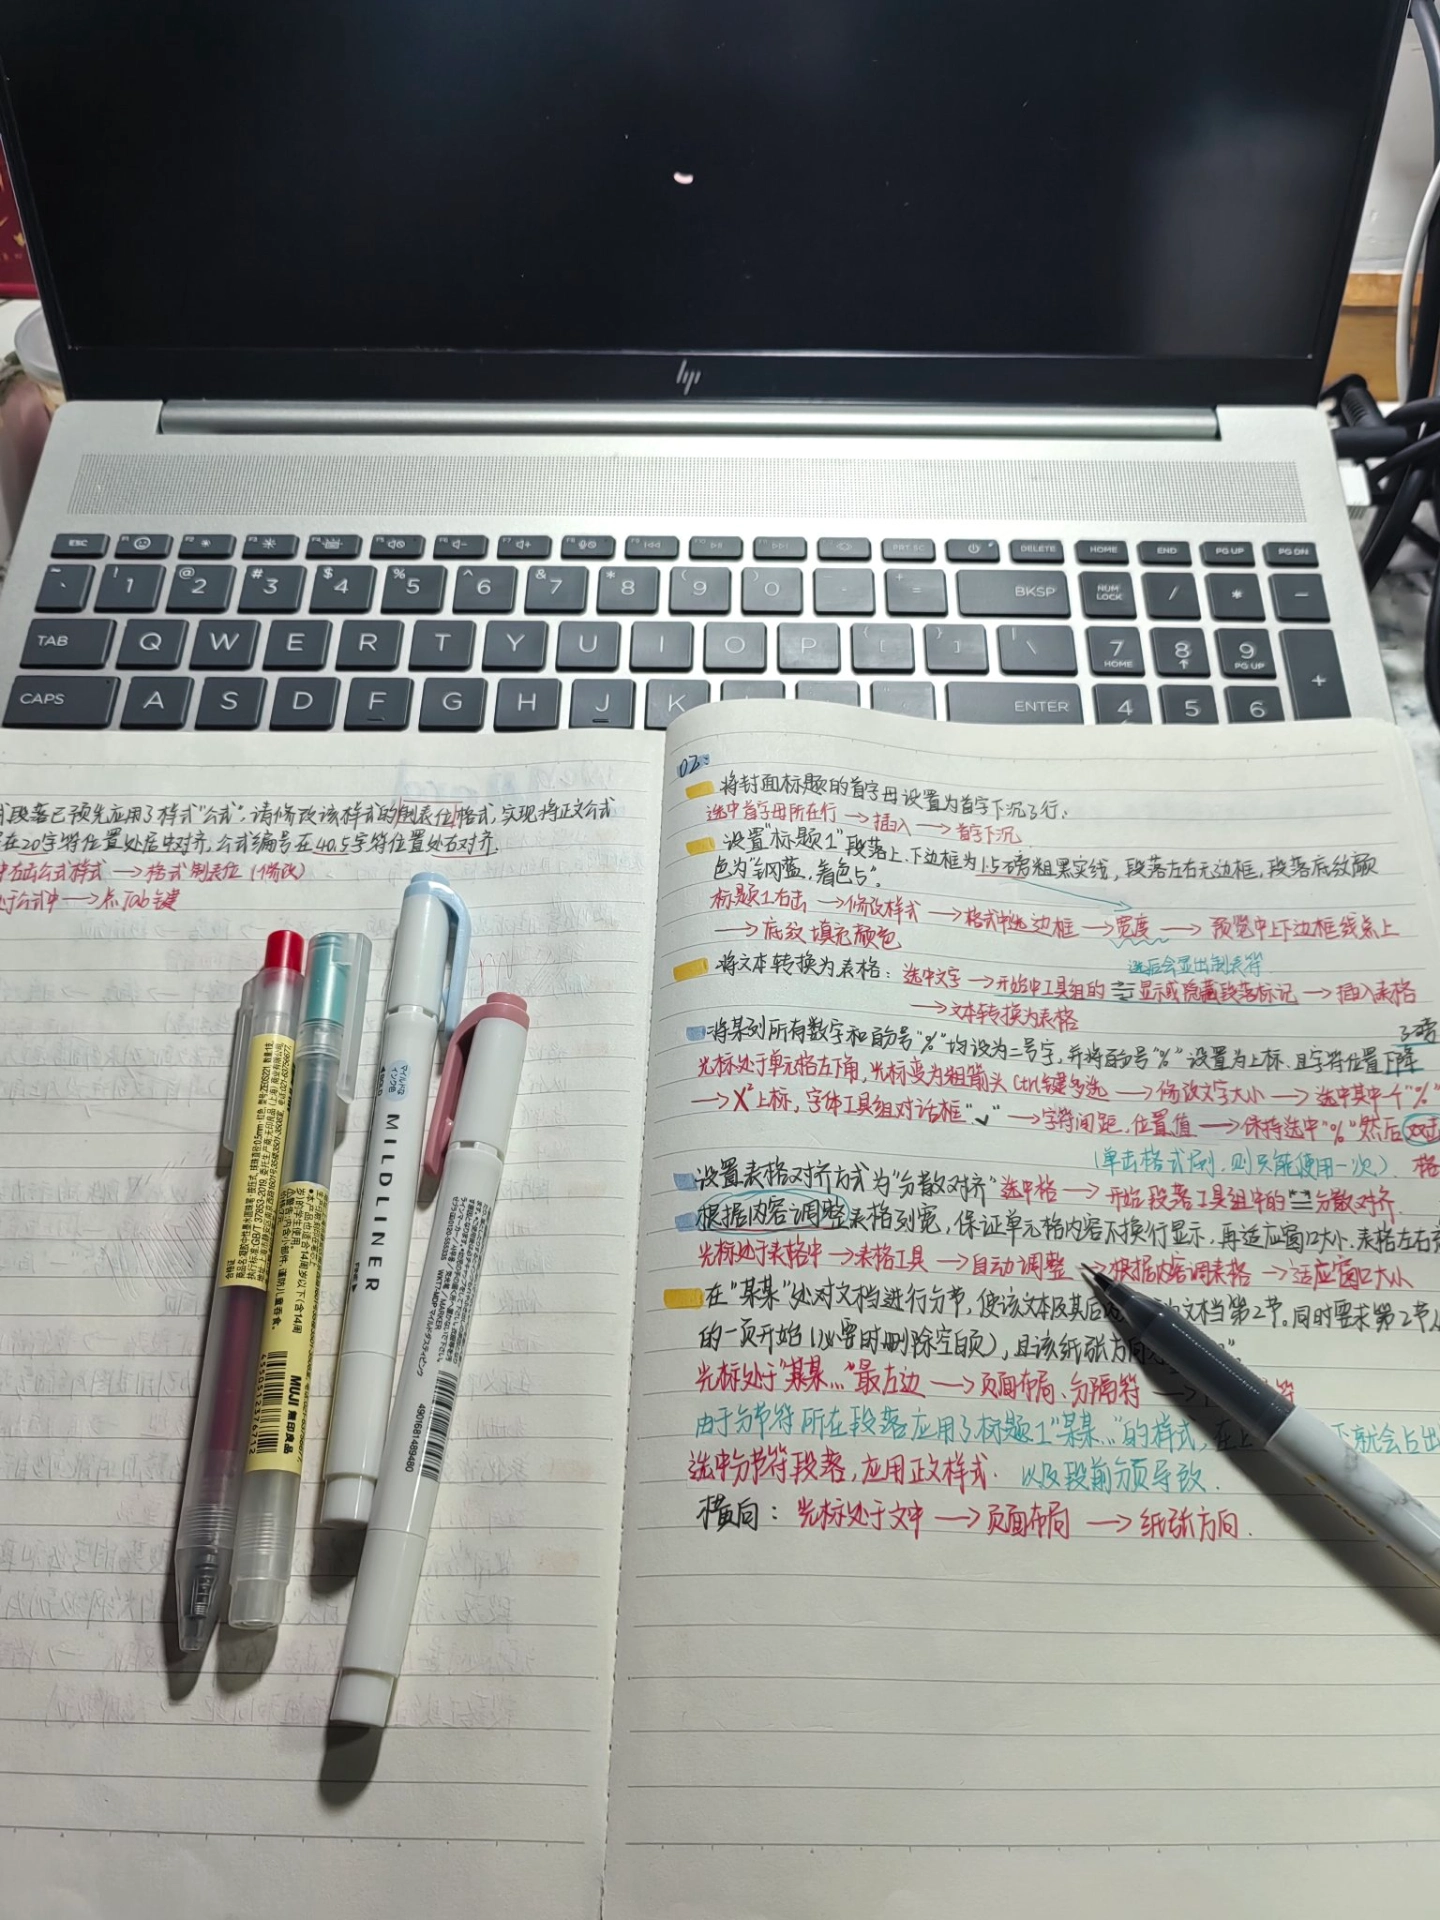 hp
ESC F1 F2 F3 F4 F5 F6 F7 F8 F9 F10 F11 PRT SC DELETE HOME END PG UP PG DN
~ ` ! 1 @ 2 # 3 $ 4 % 5 ^ 6 & 7 * 8 ( 9 ) 0 - + = BKSP NUM LOCK / * -
TAB Q W E R T Y U I O P { [ } ] | \ 7 HOME 8 9 PG UP +
CAPS A S D F G H J K ENTER 4 5 6
段落已预先应用了样式"公式",请修改该样式的制表位格式,实现将正文公式
在20字符位置处居中对齐,公式编号在40.5字符位置处右对齐.
右击公式样式→格式制表位(修改)
于公式中→点Tab键
02:
将封面标题的首字母设置为首字下沉3行.
选中首字母所在行→插入→首字下沉
设置"标题1"段落上、下边框为1.5磅粗黑实线,段落左右无边框,段落底纹颜
色为"钢蓝,着色5".
标题1右击→修改样式→格式中选边框→宽度→预览中上下边框线点上
→底纹填充颜色
选后会显出制表符
将文本转换为表格:选中文字→开始中工具组的显示或隐藏段落标记→插入表格
→文本转换为表格
3磅
将某列所有数字和百分号"%"均设为二号字,并将百分号"%"设置为上标,且字符位置下降
光标处于单元格左下角,光标变为粗箭头Ctrl键多选→修改文字大小→选中其中一个"%"
→X²上标,字体工具组对话框"↘"→字符间距,位置值→保持选中"%"然后双击
(单击格式刷,则只能使用一次)格
设置表格对齐方式为"分散对齐"选中格→开始段落工具组中的分散对齐.
根据内容调整表格列宽,保证单元格内容不换行显示,再适应窗口大小.表格左右
光标处于表格中→表格工具→自动调整→根据内容调表格→适应窗口大小
在"某某"处对文档进行分节,使该文本及其后 文档第2节.同时要求第2节
的一页开始(必要时删除空白页),且该纸张方向
光标处于"某某..."最左边→页面布局、分隔符→ 符
由于分节符所在段落应用了标题1"某某..."的样式,在 下就会占出
选中分节符段落,应用正文样式. 以及段前分页导致.
横向:光标处于文中→页面布局→纸张方向.
MILDLINER
マイルドな
インク色
WKT7-MDP マイルドダスティピンク
4901681489480
合格证
商品名:凝胶中性墨水圆珠笔
执行标准:GB/T 37853-2019
MUJI 無印良品
4550512376712